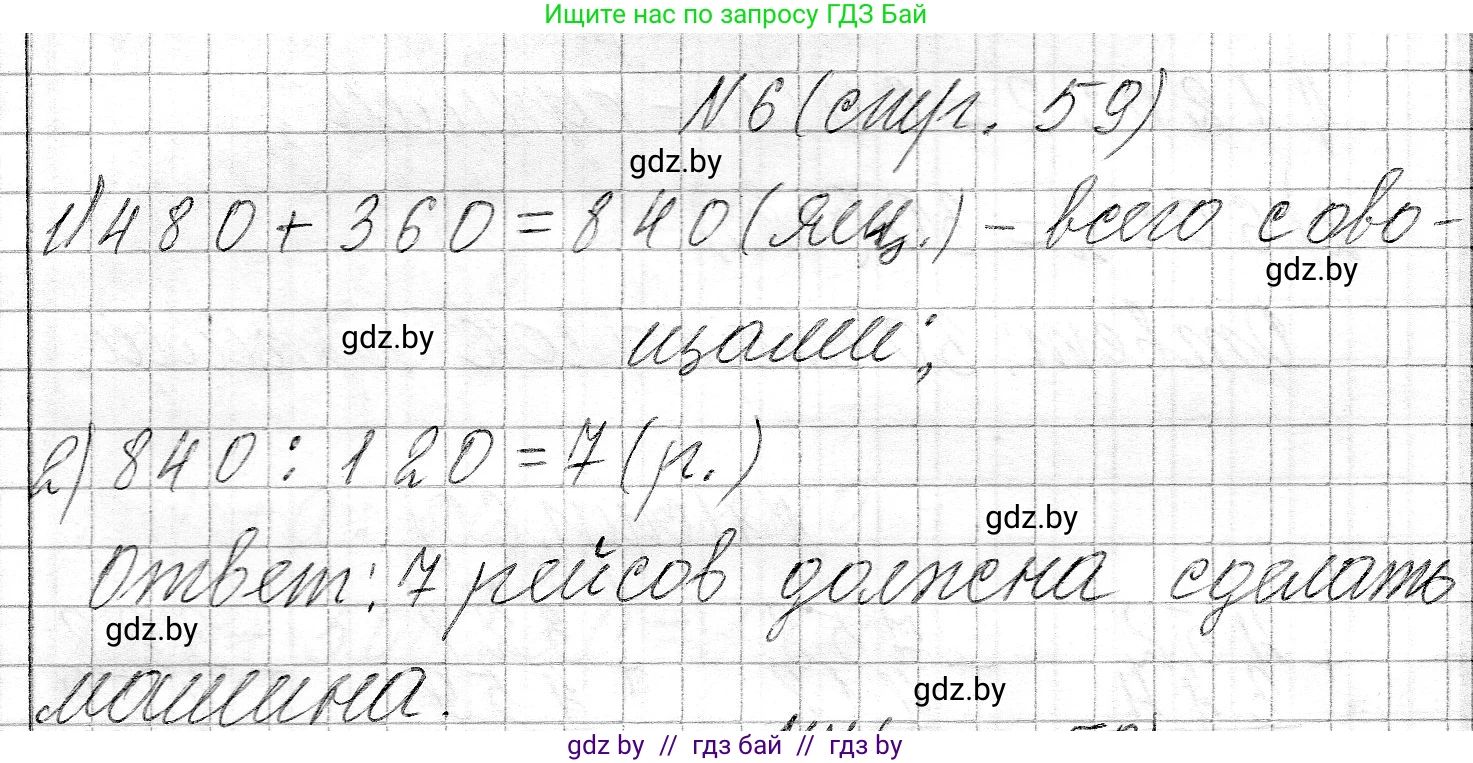 Ищите нас по запросу ГДЗ Бай
N 6 (стр. 59)
gdz.by
1) 480 + 360 = 840 (ящ.) – всего с ово-
gdz.by
gdz.by
щами;
2) 840 : 120 = 7 (р.)
gdz.by
Ответ: 7 рейсов должна сделать
gdz.by
машина.
gdz.by
gdz by // гдз бай // гдз by